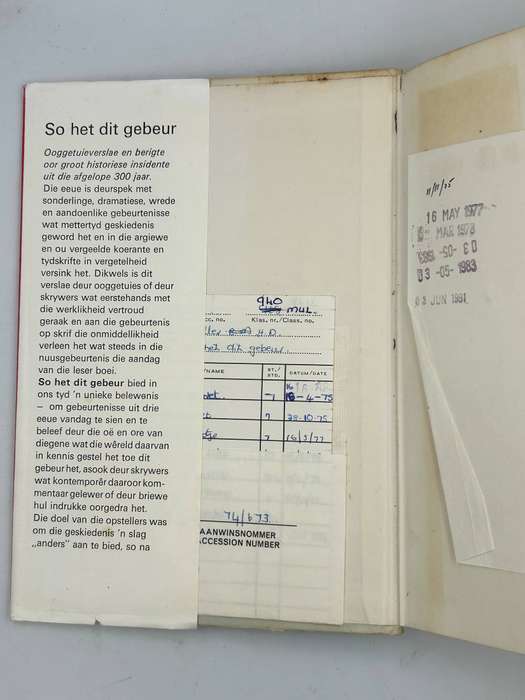 So het dit gebeur
Ooggetuieverslae en berigte
oor groot historiese insidente
uit die afgelope 300 jaar.
Die eeue is deurspek met
sonderlinge, dramatiese, wrede
en aandoenlike gebeurtenisse
wat mettertyd geskiedenis
geword het en in die argiewe
en ou vergeelde koerante en
tydskrifte in vergetelheid
versink het. Dikwels is dit
verslae deur ooggetuies of deur
skrywers wat eerstehands met
die werklikheid vertroud
geraak en aan die gebeurtenis
op skrif die onmiddellikheid
verleen het wat steeds in die
nuusgebeurtenis die aandag
van die leser boei.
So het dit gebeur bied in
ons tyd 'n unieke belewenis
— om gebeurtenisse uit drie
eeue vandag te sien en te
beleef deur die oë en ore van
diegene wat die wêreld daarvan
in kennis gestel het toe dit
gebeur het, asook deur skrywers
wat kontemporêr daaroor kom-
mentaar gelewer of deur briewe
hul indrukke oorgedra het.
Die doel van die opstellers was
om die geskiedenis 'n slag
„anders” aan te bied, so na
940
MUL.
cc. no. Klas. nr./Class. no.
H.D.
het dit gebeur
/NAME ST./STD. DATUM/DATE
-4-75
7 28-10-75
7 16/3/77
74/673
AANWINSNOMMER
ACCESSION NUMBER
11/11/75
16 MAY 1977
MAR 1978
03 -05- 1983
03 -05- 1983
JUN 1981